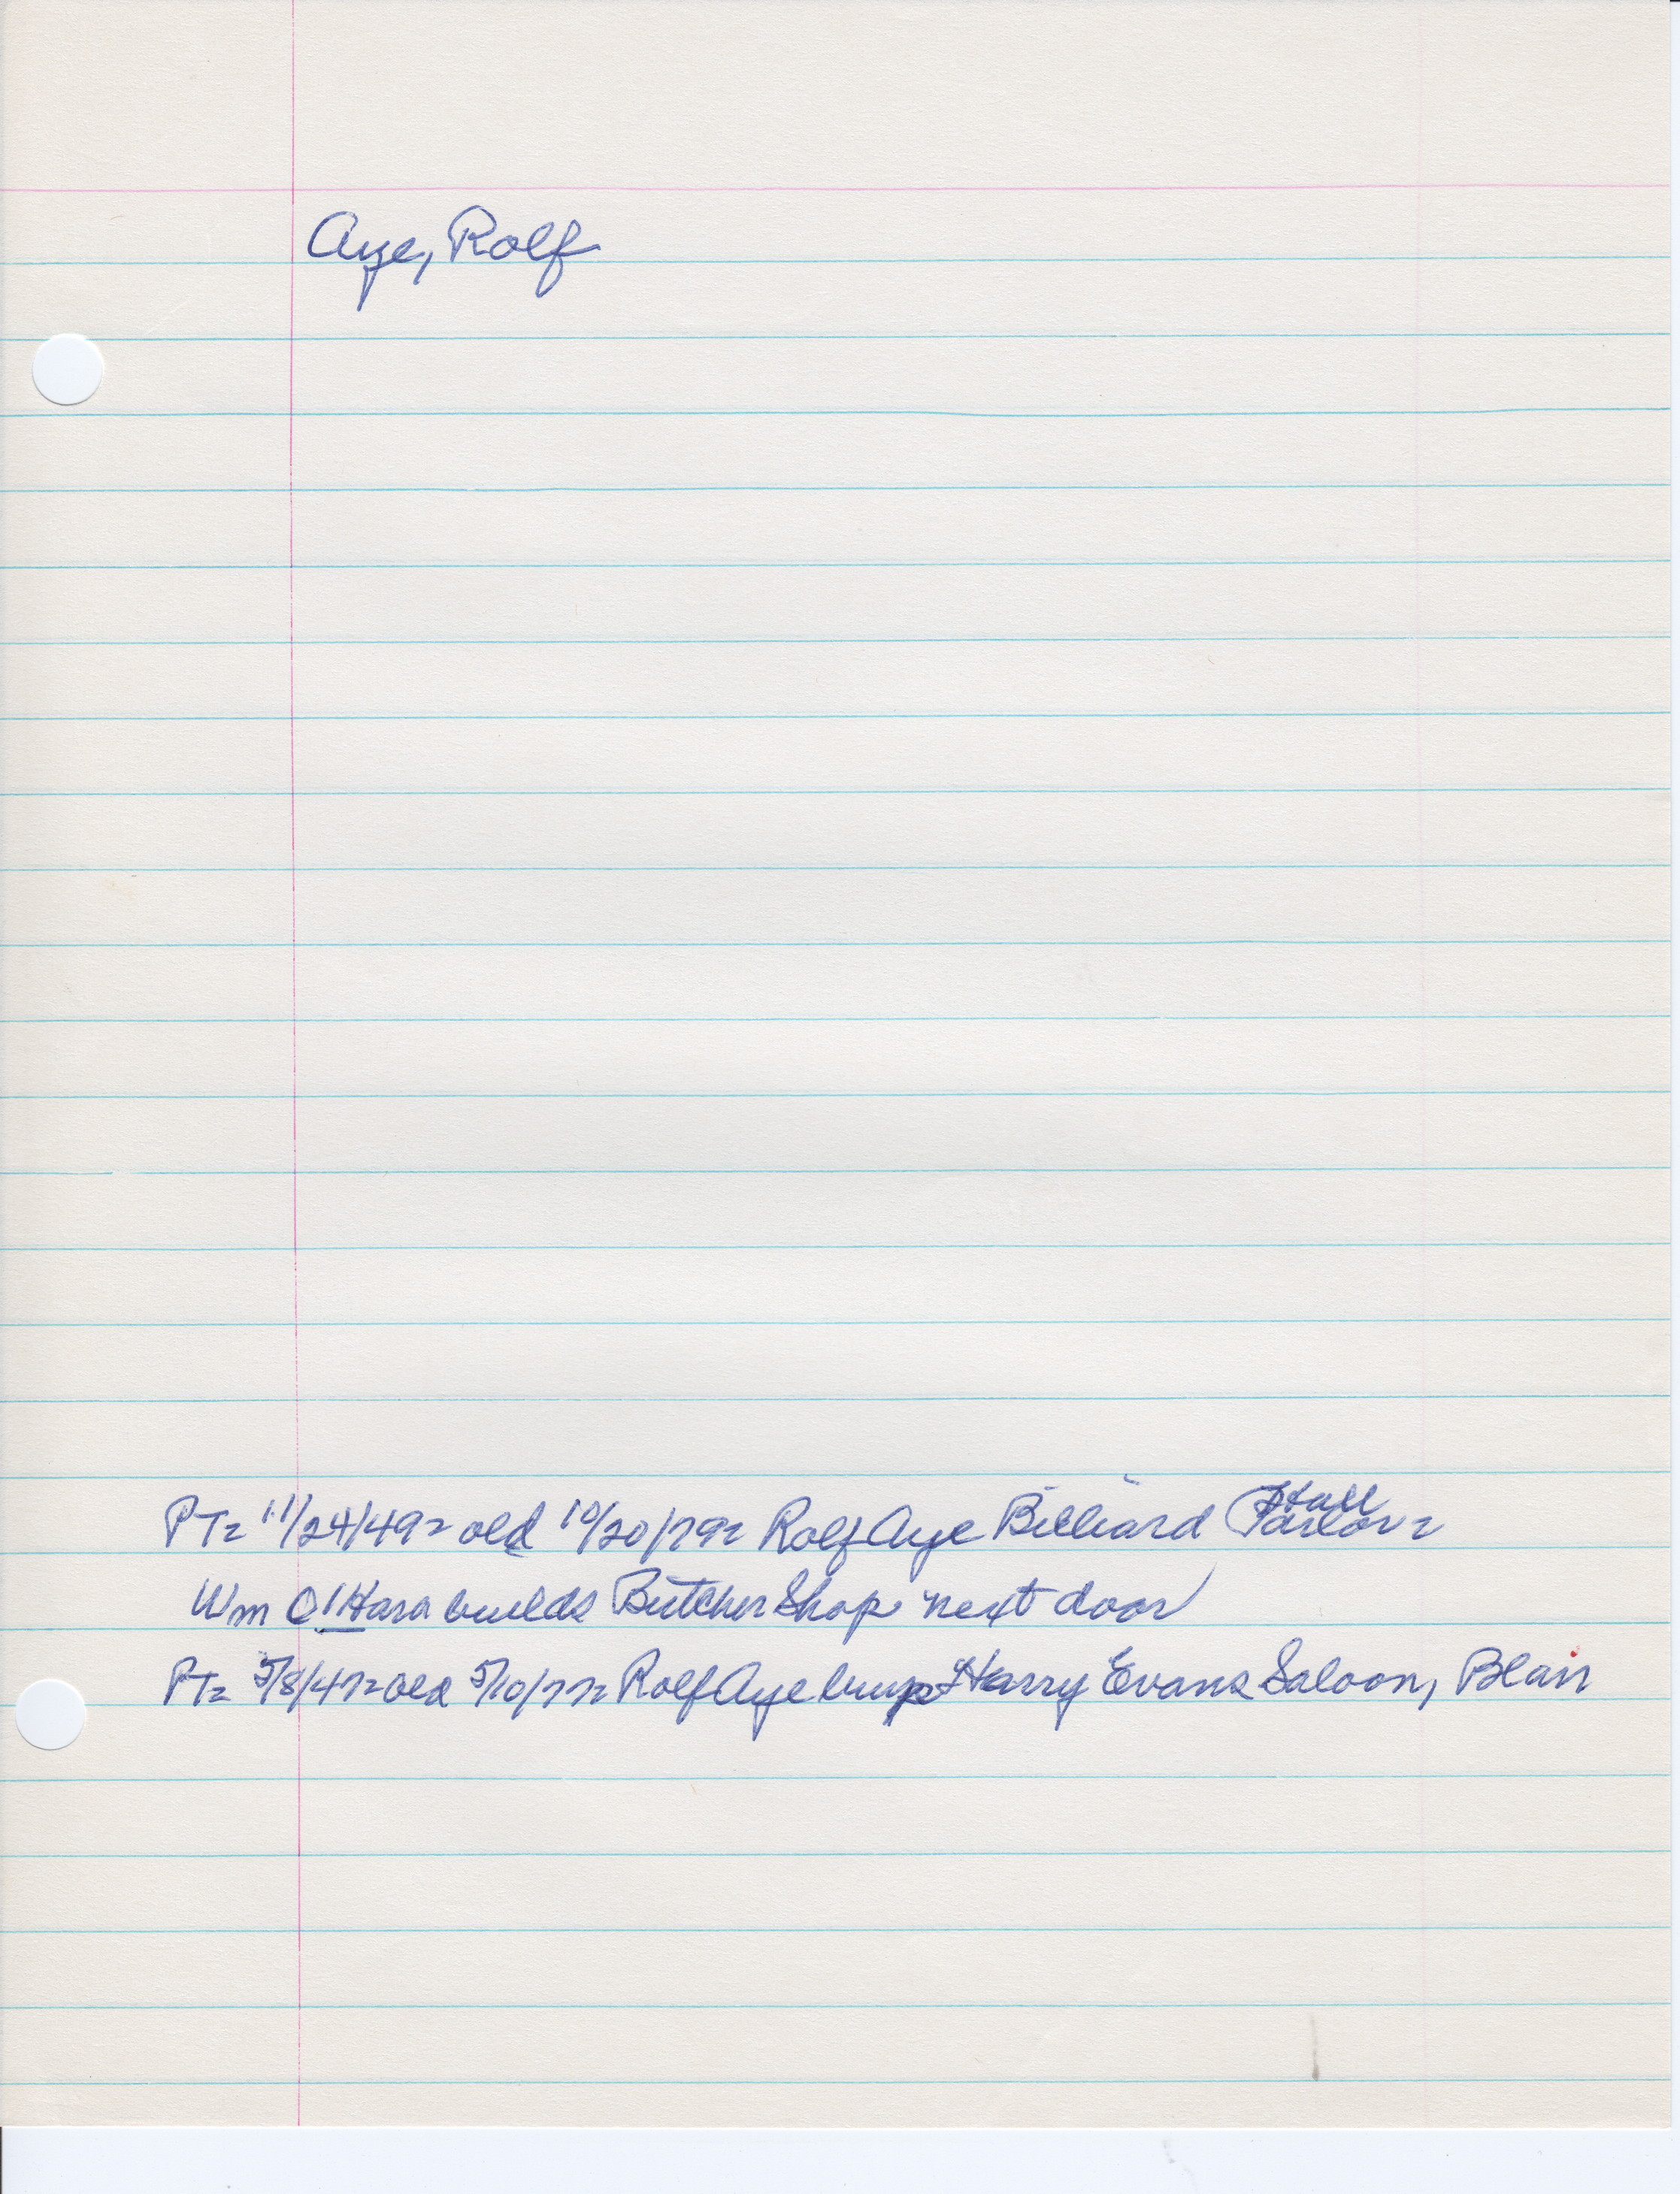 Aye, Rolf
PT= 11/24/49= old 10/20/79= Rolf Aye Billiard Hall Parlor=
Wm O'Hara builds Butcher Shop next door
PT= 5/8/47=old 5/10/77= Rolf Aye buys Harry Evans Saloon, Blair